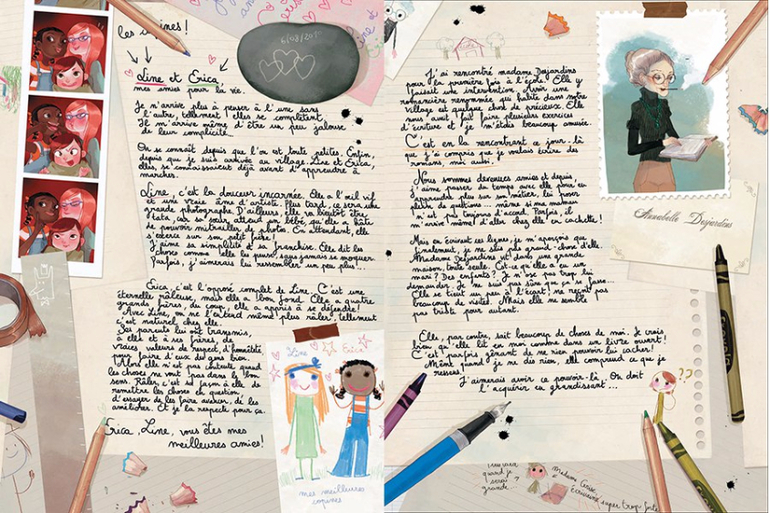 les copines !
6/08/20
Line et Erica,
mes amies pour la vie.
Je n'arrive plus à penser à l'une sans
l'autre, tellement elles se complètent.
Il m'arrive même d'être un peu jalouse
de leur complicité.
On se connaît depuis que l'on est toute petites. Enfin,
depuis que je suis arrivée au village. Line et Erica,
elles, se connaissaient déjà avant d'apprendre à
marcher.
Line, c'est la douceur incarnée. Elle a l'œil vif
et une vraie âme d'artiste. Plus tard, ce sera une
grande photographe. D'ailleurs, elle va bientôt être
tata, car sa sœur attend un bébé, qu'elle a hâte
de pouvoir mitrailler de photos. En attendant, elle
s'exerce sur son petit frère.
J'aime sa simplicité et sa franchise. Elle dit les
choses comme elle les pense, sans jamais se moquer.
Parfois, j'aimerais lui ressembler un peu plus...
Erica, c'est l'opposé complet de Line. C'est une
éternelle râleuse, mais elle a bon fond. Elle a quatre
grands frères, du coup, elle a appris à se défendre !
Avec Line, on ne l'entend même plus râler, tellement
c'est naturel chez elle.
Ses parents lui ont transmis,
à elle et à ses frères, de
vraies valeurs de respect, d'honnêteté
pour faire d'eux des gens bien.
Alors elle n'est pas chutente quand
les choses ne vont pas dans le bon
sens. Râler, c'est sa façon à elle de
remettre les choses en question,
d'essayer de les faire avancer, de les
améliorer. Et je la respecte pour ça.
Erica, Line, vous êtes mes
meilleures amies !
Line
Erica
mes meilleures
copines
école
J'ai rencontré madame Desjardins
pour la première fois à l'école. Elle y
faisait une intervention. Avoir une
romancière renommée qui habite dans notre
village est quelque chose de précieux. Elle
nous avait fait faire plusieurs exercices
d'écriture et je m'étais beaucoup amusée.
C'est en la rencontrant ce jour-là
que j'ai compris que je voulais écrire des
romans, moi aussi.
Nous sommes devenues amies et depuis,
j'aime passer du temps avec elle pour en
apprendre plus sur son métier, lui poser
plein de questions... même si ma maman
n'est pas toujours d'accord. Parfois, il
m'arrive même d'aller chez elle en cachette !
Mais en écrivant ces lignes je m'aperçois que
finalement, je ne sais pas grand-chose d'elle.
Madame Desjardins vit dans une grande
maison, toute seule. Est-ce qu'elle a eu un
mari ? Des enfants ? Je n'ose pas trop lui
demander. Je ne sais pas si ça se fasse...
Elle se tient un peu à l'écart, ne reçoit pas
beaucoup de visites. Mais elle ne semble
pas triste pour autant.
Elle, par contre, sait beaucoup de choses de moi. Je crois
bien qu'elle lit en moi comme dans un livre ouvert !
C'est parfois gênant de ne rien pouvoir lui cacher !
Même quand je ne dis rien, elle comprend ce que je
ressens.
J'aimerais avoir ce pouvoir-là. On doit
l'acquérir en grandissant...
Annabelle Desjardins
quand je
serai
grande
madame
écrivaine super trop forte